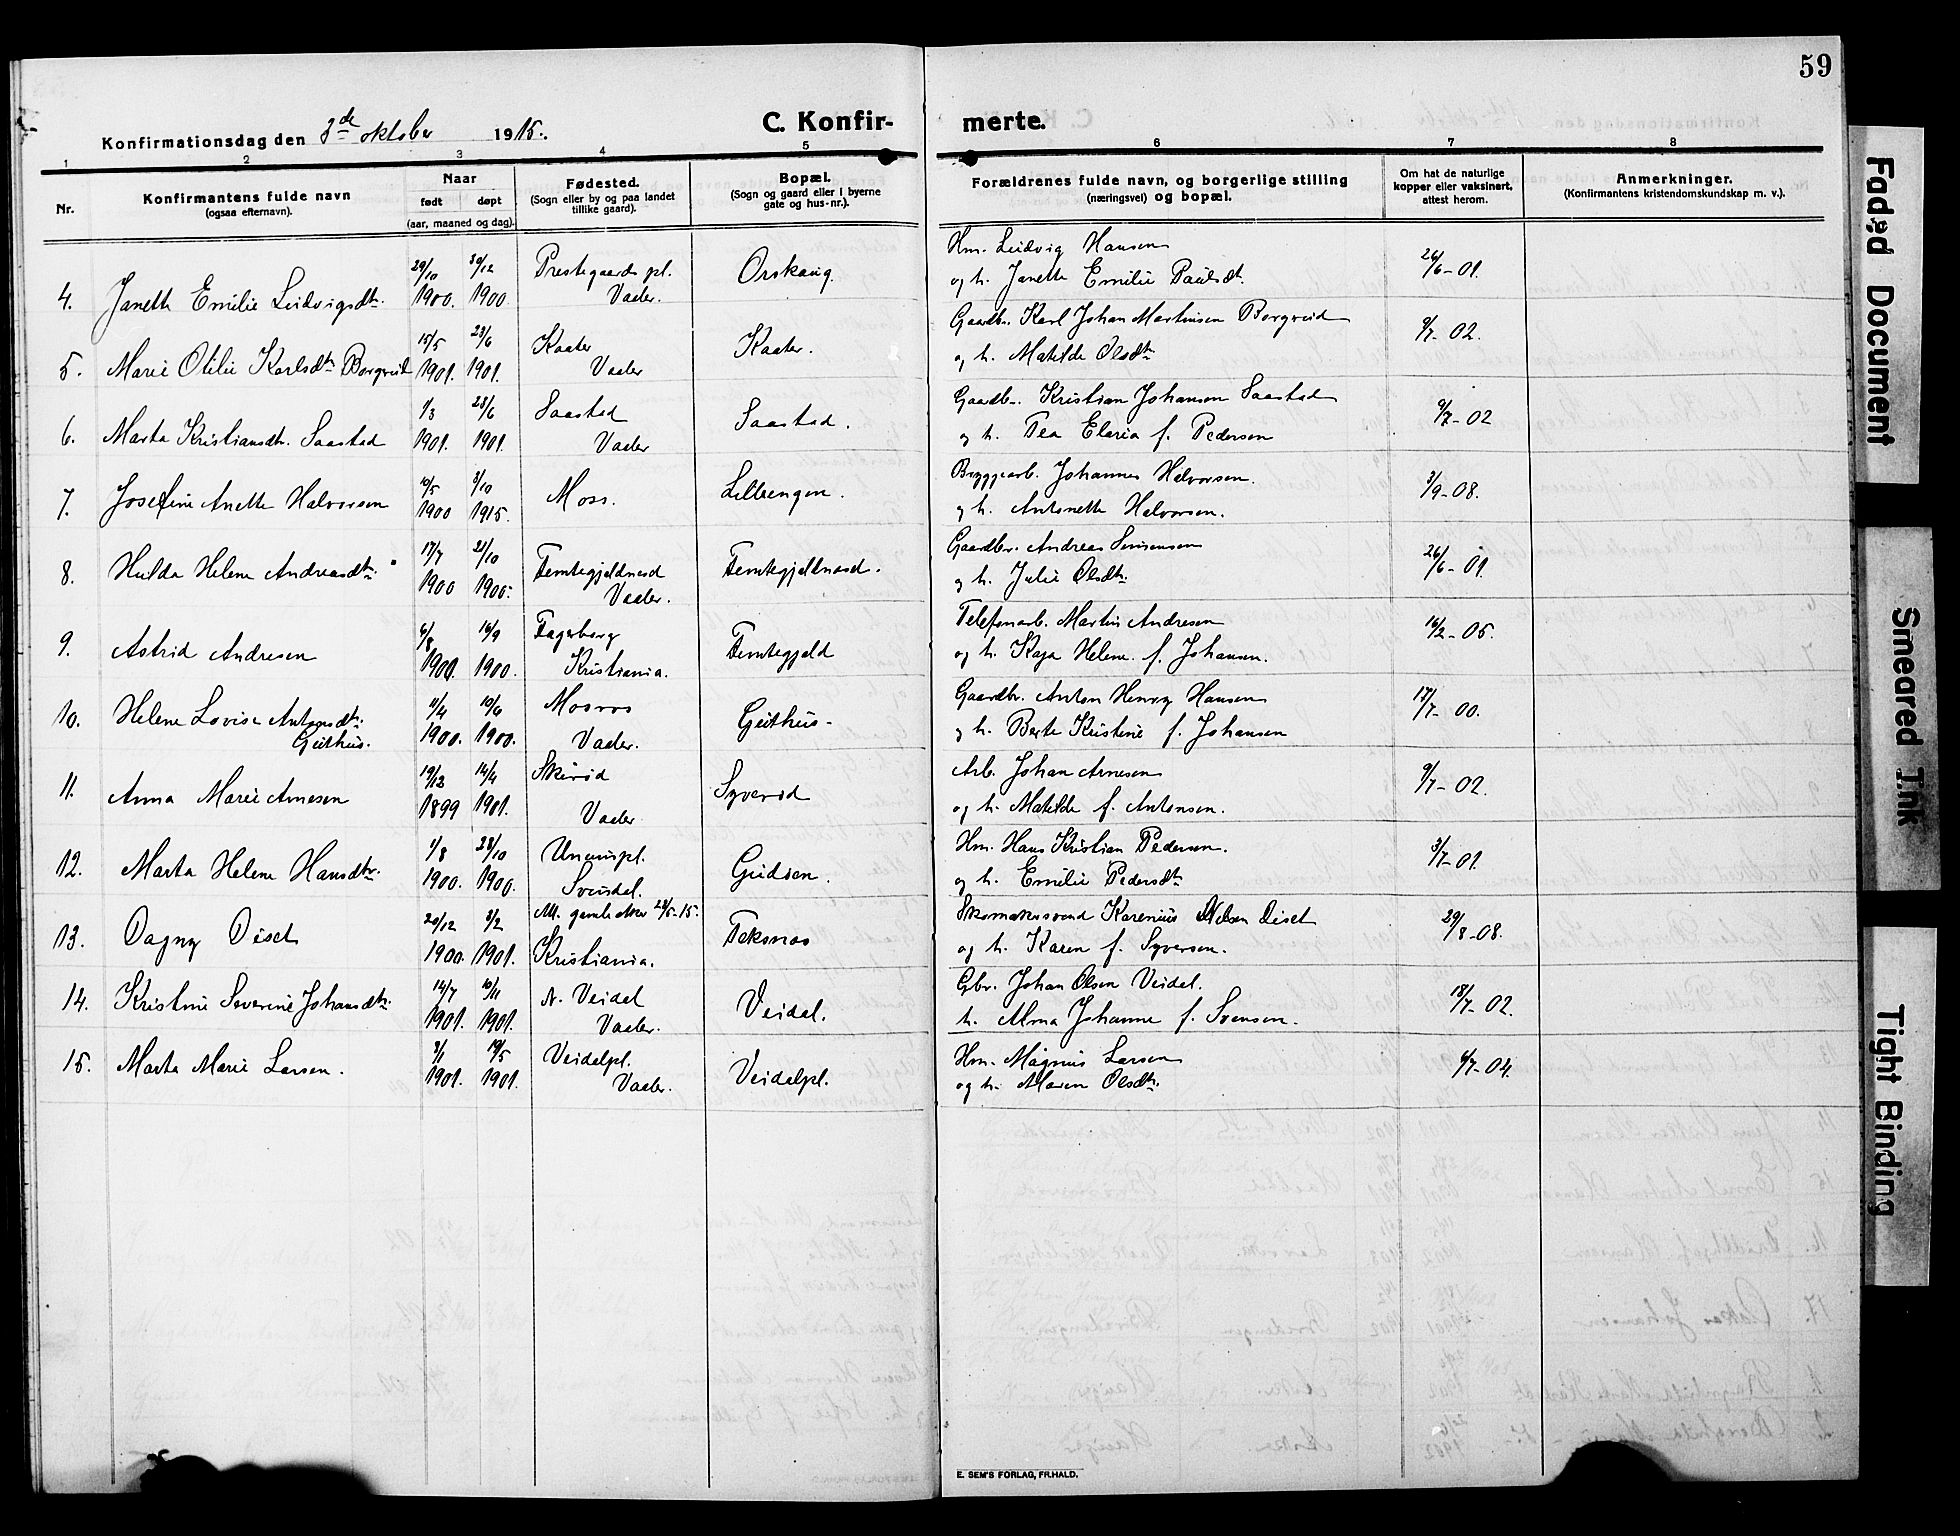 59
Konfirmationsdag den 3de oktober 1915.
C. Konfir-
merte.
1 2 3 4 5 6 7 8
Nr.
Konfirmantens fulde navn
(ogsaa efternavn).
Naar
født døpt
(aar, maaned og dag).
Fødested.
(Sogn eller by og paa landet
tillike gaard).
Bopæl.
(Sogn og gaard eller i byerne
gate og hus-nr.).
Forældrenes fulde navn, og borgerlige stilling
(næringsvei) og bopæl.
Om hat de naturlige
kopper eller vaksinert,
attest herom.
Anmerkninger.
(Konfirmantens kristendomskundskap m. v.).
29/10 30/12 Prestegaards pl. Orskaug. Hm. Ludvig Hansen 26/6-01.
4. Janette Emilie Ludvigsdtr. 1900. 1900. Vaaler. og h. Janette Emilie Paulsdt.
15/5 23/6 Kaater Kaater. Gaardbr. Karl Johan Martinsen Borgreid 9/7-02.
5. Marie Otilie Karlsdtr Borgreid 1901. 1901. Vaaler og h. Matilde Olsdtr.
1/3 23/6 Saastad Saastad. Gaardb. Kristian Johansen Saastad 9/7-02
6. Marta Kristiansdtr. Saastad 1901. 1901. Vaaler og h. Tea Elaria f. Pedersen
10/5 3/10 Moss. Lilleengen. Bryggearb. Johannes Halvorsen. 3/9-08.
7. Josefine Anette Halvorsen 1900 1915. og h. Antonette Halvorsen.
17/7 21/10 Femtegjeldnord Femtegjeldnord. Gaardbr. Andreas Simensen 26/6-01.
8. Hulda Helene Andreasdtr. 1900 1900. Vaaler. og h. Julie Olsdtr.
6/8 16/9 Fagerborg Femtegjeld Telefonarb. Martin Andresen 16/2-05.
9. Astrid Andresen 1900. 1900. Kristiania. og h. Kaja Helene f. Johansen.
11/4 10/6 Mosros Guthus- Gaardbr. Anton Henry Hansen 17/7-00.
10. Helene Lovise Antonsdtr. 1900. 1900. Vaaler. og h. Berte Kristine f. Johansen
Guthus.
19/12 14/4 Skirød Syverød Arb. Johan Arnesen 9/7-02.
11. Anna Marie Arnesen 1899 1901. Vaaler og h. Matilde f. Antonsen.
1/8 28/10 Unumspl. Gudsen. Hm. Hans Kristian Pedersen. 3/7-01.
12. Marta Helene Hansdtr. 1900. 1900. Svindal. og h. Emilie Pedersdtr
20/12 3/2 Att. gamle Aker 28/5-15. Teksnas Skomakersvend Karenius Nilsen Diset 29/8-08.
13. Dagny Diset 1900. 1901. Kristiania. og h. Karen f. Syversen.
14/7 10/11 N. Veidal Veidal. Gbr. Johan Olsen Veidal. 18/7-02.
14. Kristine Severine Johansdtr. 1901. 1901. Vaaler. h. Alma Johanne f. Svensen.
3/1 19/5 Veidalpl. Veidalpl. Hm. Magnus Larsen 6/7-04.
15. Marta Marie Larsen. 1901. 1901. Vaaler. og h. Maren Olsdtr.
E. SEM'S FORLAG, FR.HALD.
Faded Document
Smeared Ink
Tight Binding